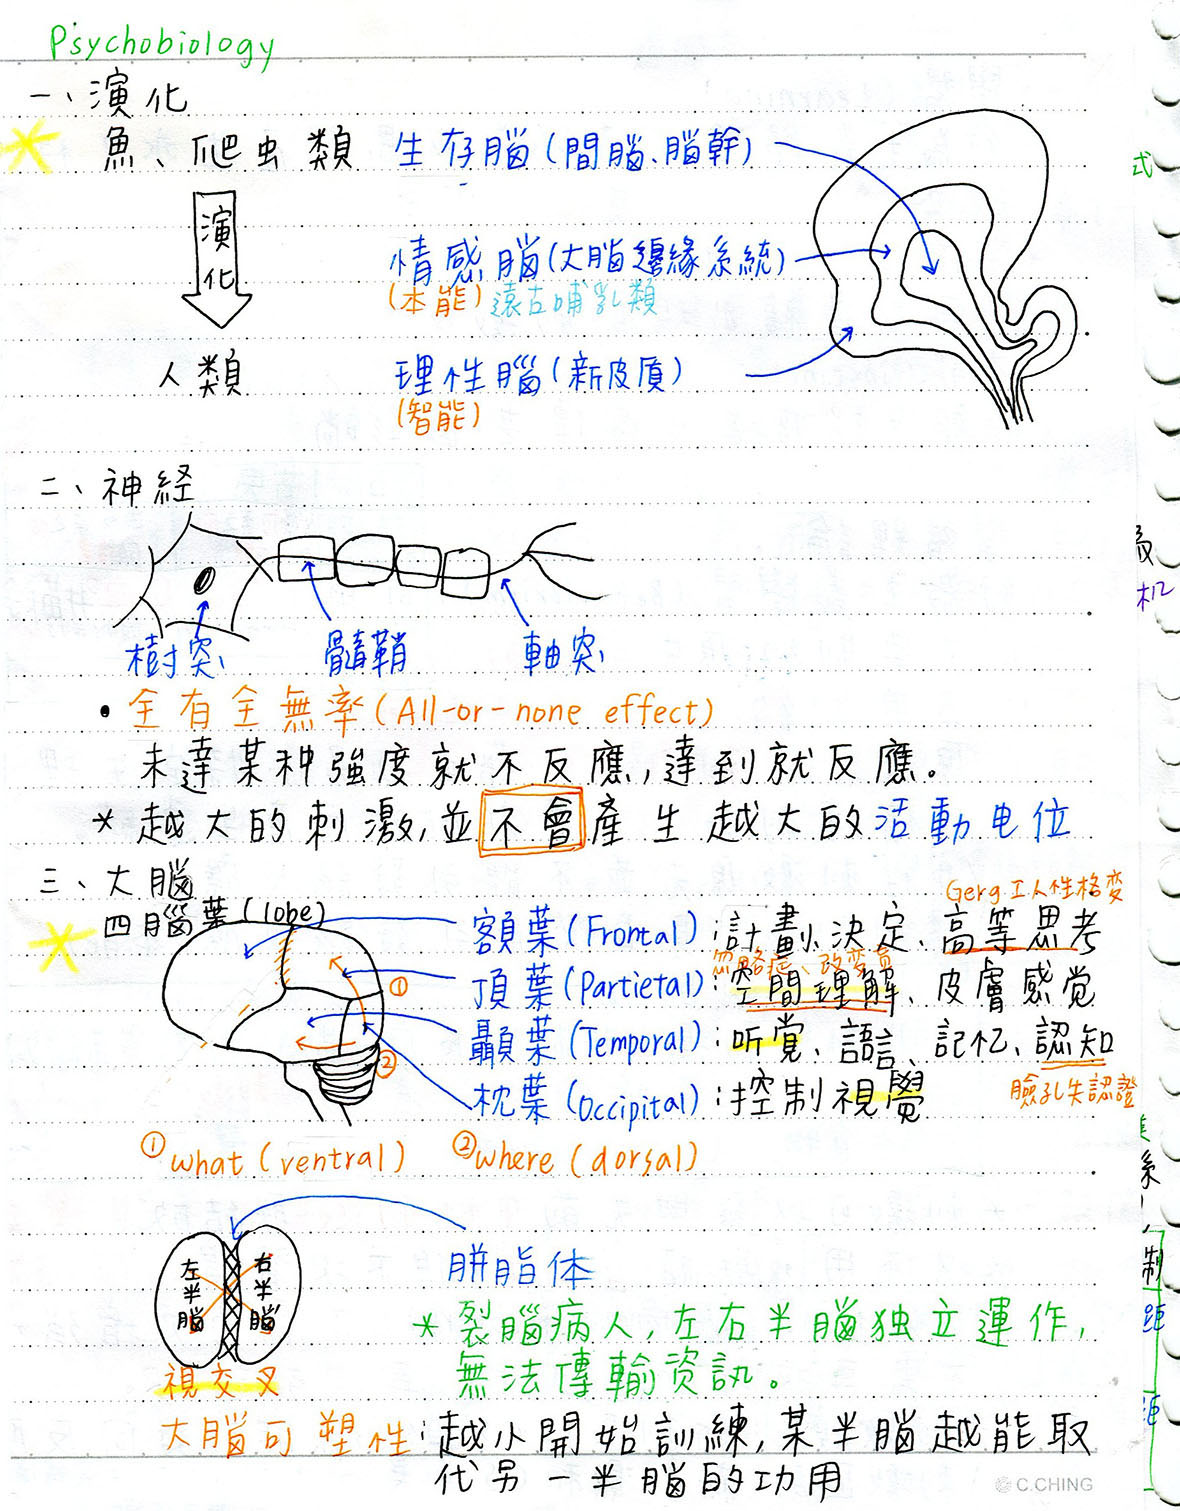 Psychobiology
一、演化
魚、爬虫類 生存腦(間腦、腦幹)
演化
情感腦(大腦邊緣系統)
(本能) 遠古哺乳類
人類 理性腦(新皮質)
(智能)
二、神経
樹突 髓鞘 軸突
• 全有全無率(All-or-none effect)
未達某种強度就不反應,達到就反應。
* 越大的刺激,並不會產生越大的活動电位
三、大腦
Gerg工人性格变
四腦葉(lobe) 額葉(Frontal):計劃、決定、高等思考
忽略症、改变盲
頂葉(Partietal):空間理解、皮膚感覚
①
顳葉(Temporal):听覚、語言、記忆、認知
②
枕葉(Occipital):控制視覺 臉孔失認證
①what(ventral) ②where(dorsal)
左半腦 右半腦
胼胝体
* 裂腦病人,左右半腦独立運作,
視交叉 無法傳輸資訊。
大腦可塑性:越小開始訓練,某半腦越能取
代另一半腦的功用
C.CHING
式
机
系
制
距
距